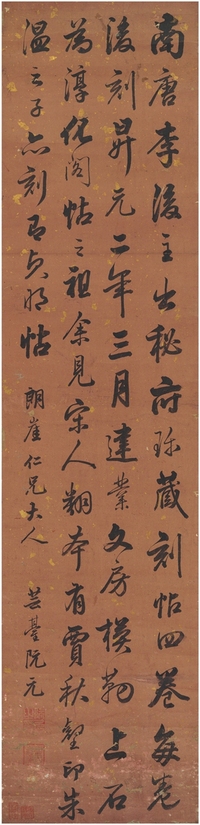 南唐李後主出秘府珍藏刻帖四卷每卷
後刻昇元二年三月建業文房模勒上石
為淳化閣帖之祖余見宋人翻本有賈秋壑印朱
温之子亦刻有貞明帖
朗崖仁兄大人
芸臺阮元